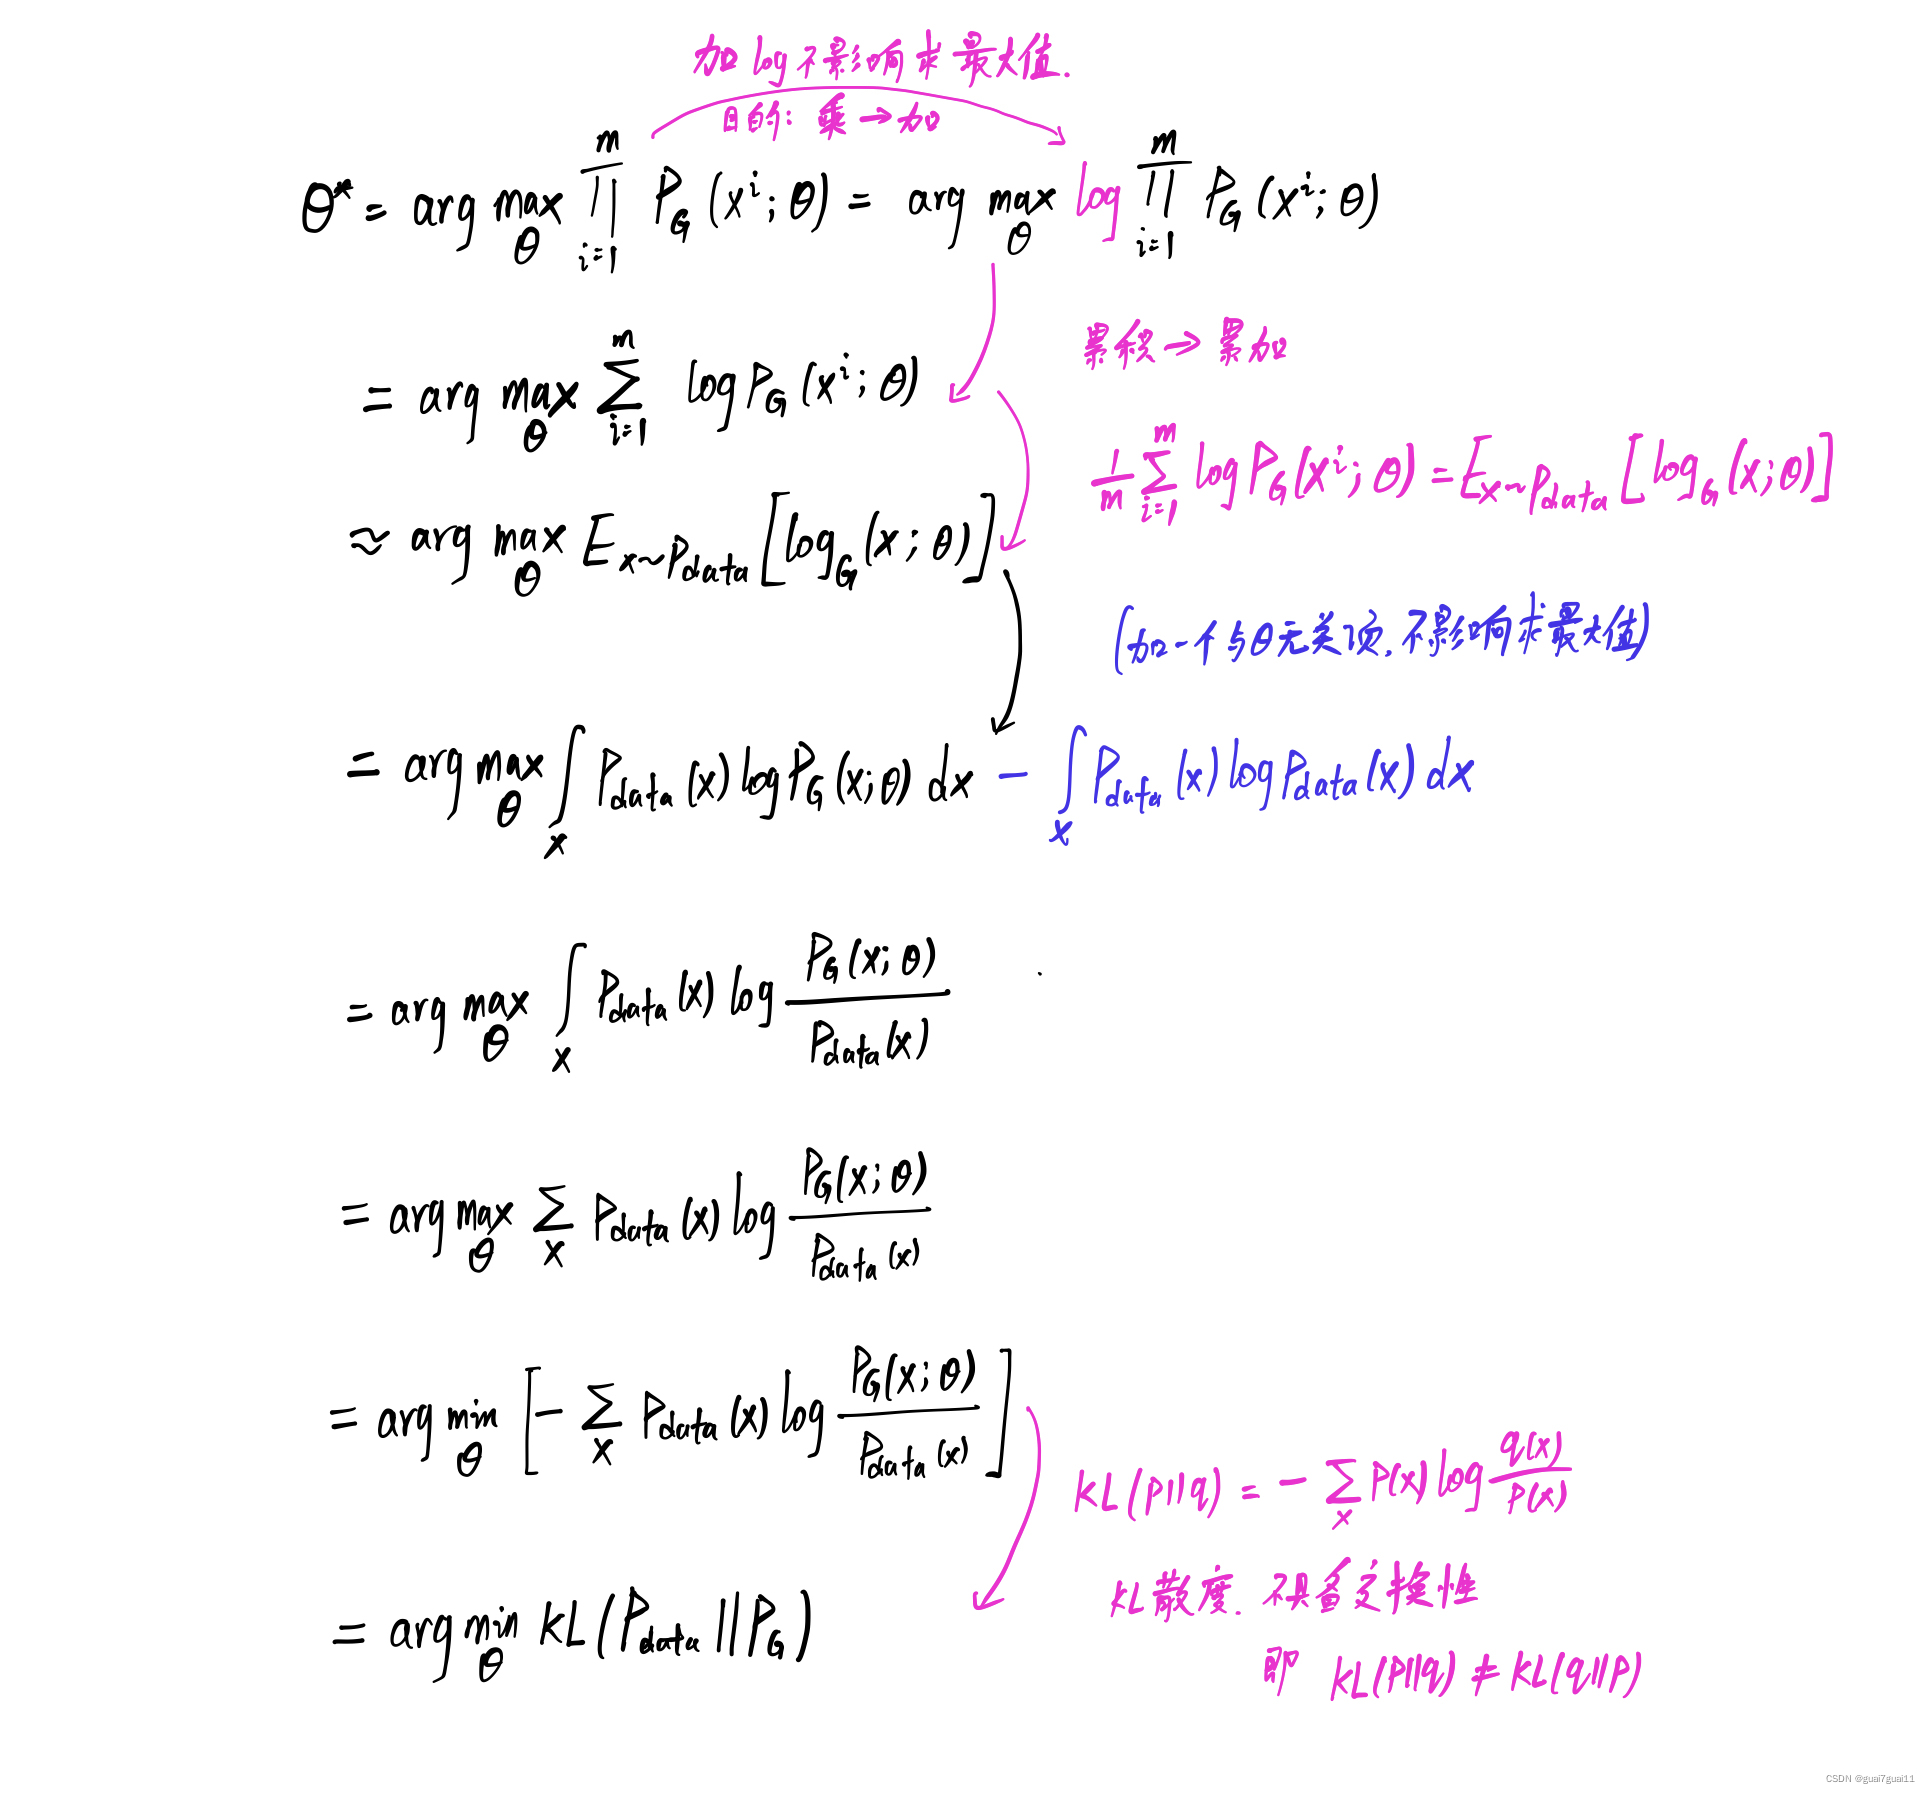 加log不影响求最大值.
目的: 乘→加
θ* = arg max_θ ∏_{i=1}^{m} P_G(x^i; θ) = arg max_θ log ∏_{i=1}^{m} P_G(x^i; θ)
累积→累加
= arg max_θ ∑_{i=1}^{m} log P_G(x^i; θ)
1/m ∑_{i=1}^{m} log P_G(x^i; θ) = E_{x~P_data}[log_G(x; θ)]
≈ arg max_θ E_{x~P_data}[log_G(x; θ)]
(加一个与θ无关项.不影响求最大值)
= arg max_θ ∫_x P_data(x) log P_G(x; θ) dx - ∫_x P_data(x) log P_data(x) dx
= arg max_θ ∫_x P_data(x) log P_G(x; θ)/P_data(x)
= arg max_θ ∑_x P_data(x) log P_G(x; θ)/P_data(x)
= arg min_θ [- ∑_x P_data(x) log P_G(x; θ)/P_data(x)]
KL(p||q) = - ∑_x P(x) log q(x)/P(x)
KL散度.不具备交换性
= arg min_θ KL(P_data || P_G)
即 KL(P||q) ≠ KL(q||P)
CSDN @guai7guai11